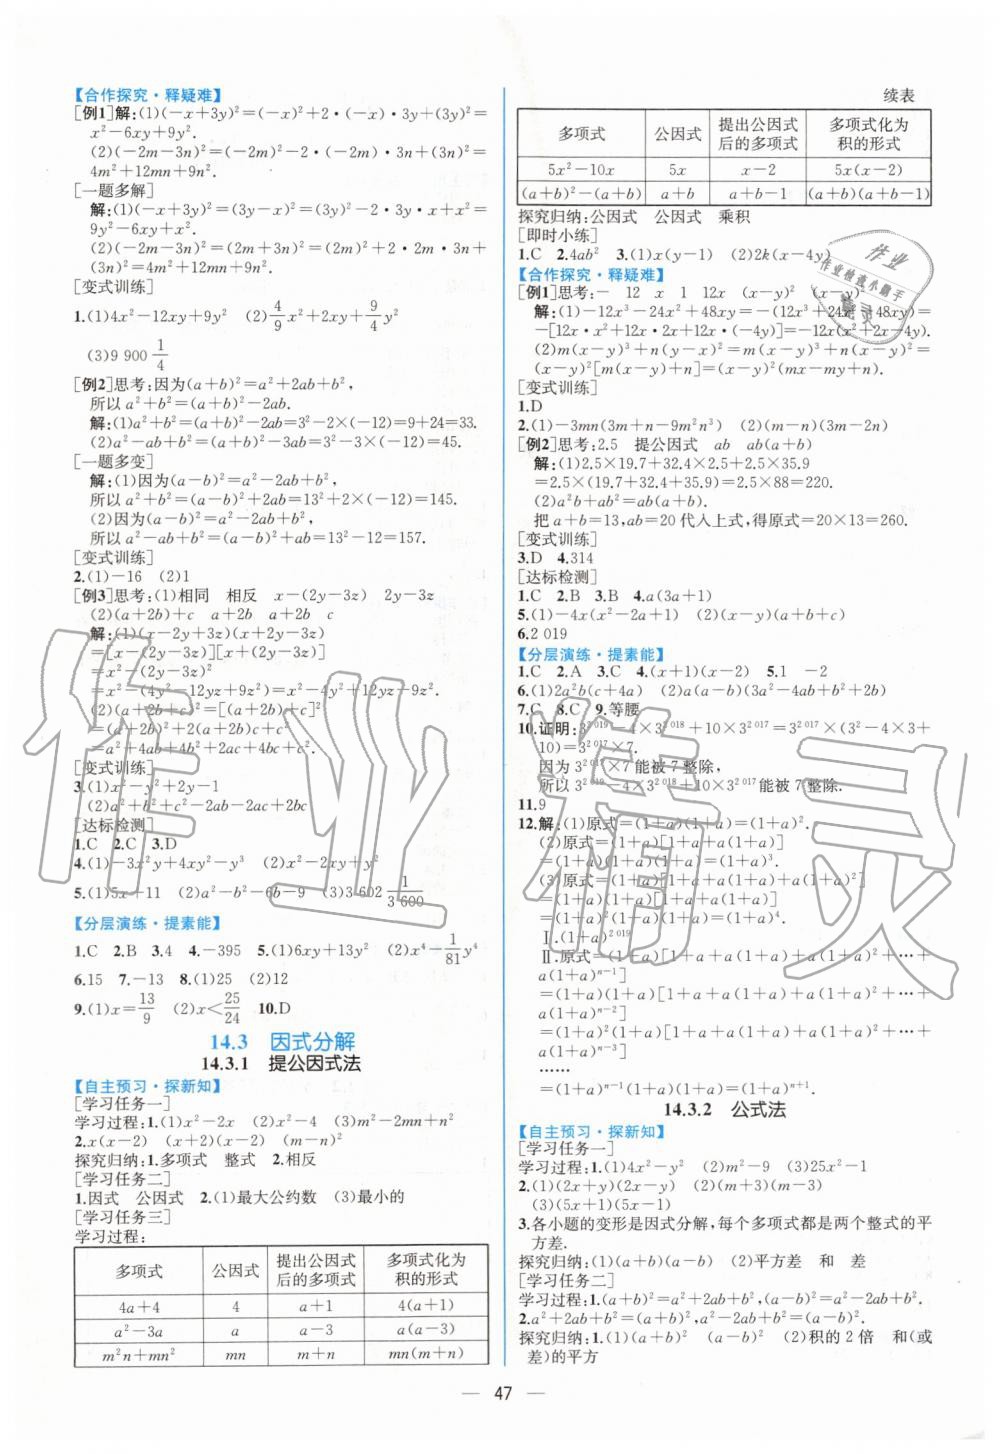 【合作探究·释疑难】
[例1]解:(1)(－x+3y)²=(－x)²+2·(－x)·3y+(3y)²=
x²－6xy+9y².
(2)(－2m－3n)²=(－2m)²－2·(－2m)·3n+(3n)²=
4m²+12mn+9n².
[一题多解]
解:(1)(－x+3y)²=(3y－x)²=(3y)²－2·3y·x+x²=
9y²－6xy+x².
(2)(－2m－3n)²=(2m+3n)²=(2m)²+2·2m·3n+
(3n)²=4m²+12mn+9n².
[变式训练]
1.(1)4x²－12xy+9y² (2)4/9x²+2xy+9/4y²
(3)9 900 1/4
[例2]思考:因为(a+b)²=a²+2ab+b²,
所以a²+b²=(a+b)²－2ab.
解:(1)a²+b²=(a+b)²－2ab=3²－2×(－12)=9+24=33.
(2)a²－ab+b²=(a+b)²－3ab=3²－3×(－12)=45.
[一题多变]
解:(1)因为(a－b)²=a²－2ab+b²,
所以a²+b²=(a－b)²+2ab=13²+2×(－12)=145.
(2)因为(a－b)²=a²－2ab+b²,
所以a²－ab+b²=(a－b)²+ab=13²－12=157.
[变式训练]
2.(1)－16 (2)1
[例3]思考:(1)相同 相反 x－(2y－3z) 2y－3z
(2)(a+2b)+c a+2b a+2b c
解:(1)(x－2y+3z)(x+2y－3z)
=[x－(2y－3z)][x+(2y－3z)]
=x²－(2y－3z)²
=x²－(4y²－12yz+9z²)=x²－4y²+12yz－9z².
(2)(a+2b+c)²=[(a+2b)+c]²
=(a+2b)²+2(a+2b)c+c²
=a²+4ab+4b²+2ac+4bc+c².
[变式训练]
3.(1)x²－y²+2y－1
(2)a²+b²+c²－2ab－2ac+2bc
[达标检测]
1.C 2.C 3.D
4.(1)－3x²y+4xy²－y³ (2)x²－2xy+x
5.(1)5x+11 (2)a²－b²－6b－9 (3)3 602 1/3 600
【分层演练·提素能】
1.C 2.B 3.4 4.－395 5.(1)6xy+13y² (2)x⁴－1/81y⁴
6.15 7.－13 8.(1)25 (2)12
9.(1)x=13/9 (2)x<25/24 10.D
14.3 因式分解
14.3.1 提公因式法
【自主预习·探新知】
[学习任务一]
学习过程:1.(1)x²－2x (2)x²－4 (3)m²－2mn+n²
2.x(x－2) (x+2)(x－2) (m－n)²
探究归纳:1.多项式 整式 2.相反
[学习任务二]
1.因式 公因式 2.(1)最大公约数 (3)最小的
[学习任务三]
学习过程:
多项式 公因式 提出公因式后的多项式 多项式化为积的形式
4a+4 4 a+1 4(a+1)
a²－3a a a－3 a(a－3)
m²n+mn² mn m+n mn(m+n)
续表
多项式 公因式 提出公因式后的多项式 多项式化为积的形式
5x²－10x 5x x－2 5x(x－2)
(a+b)²－(a+b) a+b a+b－1 (a+b)(a+b－1)
探究归纳:公因式 公因式 乘积
[即时小练]
1.C 2.4ab² 3.(1)x(y－1) (2)2k(x－4y)
【合作探究·释疑难】
[例1]思考:－ 12 x 1 12x (x－y)² (x－y)²
解:(1)－12x³－24x²+48xy=－(12x³+24x²－48xy)=
－[12x·x²+12x·2x+12x·(－4y)]=－12x(x²+2x－4y).
(2)m(x－y)³+n(y－x)²=m(x－y)³+n(x－y)²=
(x－y)²[m(x－y)+n]=(x－y)²(mx－my+n).
[变式训练]
1.D
2.(1)－3mn(3m+n－9m²n³) (2)(m－n)(3m－2n)
[例2]思考:2.5 提公因式 ab ab(a+b)
解:(1)2.5×19.7+32.4×2.5+2.5×35.9
=2.5×(19.7+32.4+35.9)=2.5×88=220.
(2)a²b+ab²=ab(a+b).
把a+b=13,ab=20代入上式,得原式=20×13=260.
[变式训练]
3.D 4.314
[达标检测]
1.C 2.B 3.B 4.a(3a+1)
5.(1)－4x(x²－2a+1) (2)(x－y)(a+b+c)
6.2 019
【分层演练·提素能】
1.C 2.A 3.C 4.(x+1)(x－2) 5.1 －2
6.(1)2a²b(c+4a) (2)2a(a－b)(3a²－4ab+b²+2b)
7.C 8.C 9.等腰
10.证明:3²⁰¹⁹－4×3²⁰¹⁸+10×3²⁰¹⁷=3²⁰¹⁷×(3²－4×3+
10)=3²⁰¹⁷×7.
因为3²⁰¹⁷×7能被7整除,
所以3²⁰¹⁹－4×3²⁰¹⁸+10×3²⁰¹⁷能被7整除.
11.9
12.解:(1)原式=(1+a)(1+a)=(1+a)².
(2)原式=(1+a)[1+a+a(1+a)]
=(1+a)(1+a)(1+a)=(1+a)³.
(3)原式=(1+a)[1+a+a(1+a)+a(1+a)²]
=(1+a)(1+a)[1+a+a(1+a)]
=(1+a)²(1+a)(1+a)=(1+a)⁴.
Ⅰ.(1+a)²⁰¹⁹
Ⅱ.原式=(1+a)[1+a+a(1+a)+a(1+a)²+···+
a(1+a)ⁿ⁻¹]
=(1+a)(1+a)[1+a+a(1+a)+a(1+a)²+···+
a(1+a)ⁿ⁻²]
=(1+a)²(1+a)[1+a+a(1+a)+a(1+a)²+···+
a(1+a)ⁿ⁻³]
……
=(1+a)ⁿ⁻¹(1+a)(1+a)=(1+a)ⁿ⁺¹.
14.3.2 公式法
【自主预习·探新知】
[学习任务一]
学习过程:1.(1)4x²－y² (2)m²－9 (3)25x²－1
2.(1)(2x+y)(2x－y) (2)(m+3)(m－3)
(3)(5x+1)(5x－1)
3.各小题的变形是因式分解,每个多项式都是两个整式的平
方差.
探究归纳:(1)(a+b)(a－b) (2)平方差 和 差
[学习任务二]
学习过程:1.(a+b)²=a²+2ab+b²,(a－b)²=a²－2ab+b².
2.a²+2ab+b²=(a+b)²,a²－2ab+b²=(a－b)².
探究归纳:1.(a+b)² (a－b)² (2)积的2倍 和(或
差)的平方
— 47 —
作业
作业检查小助手
精灵
作业精灵